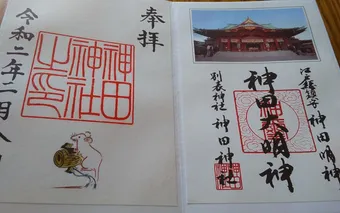 奉拝
神田
神社
之印
令和二年二月八
江戸総鎮守 神田明神
神田大明神
別表神社 神田神社